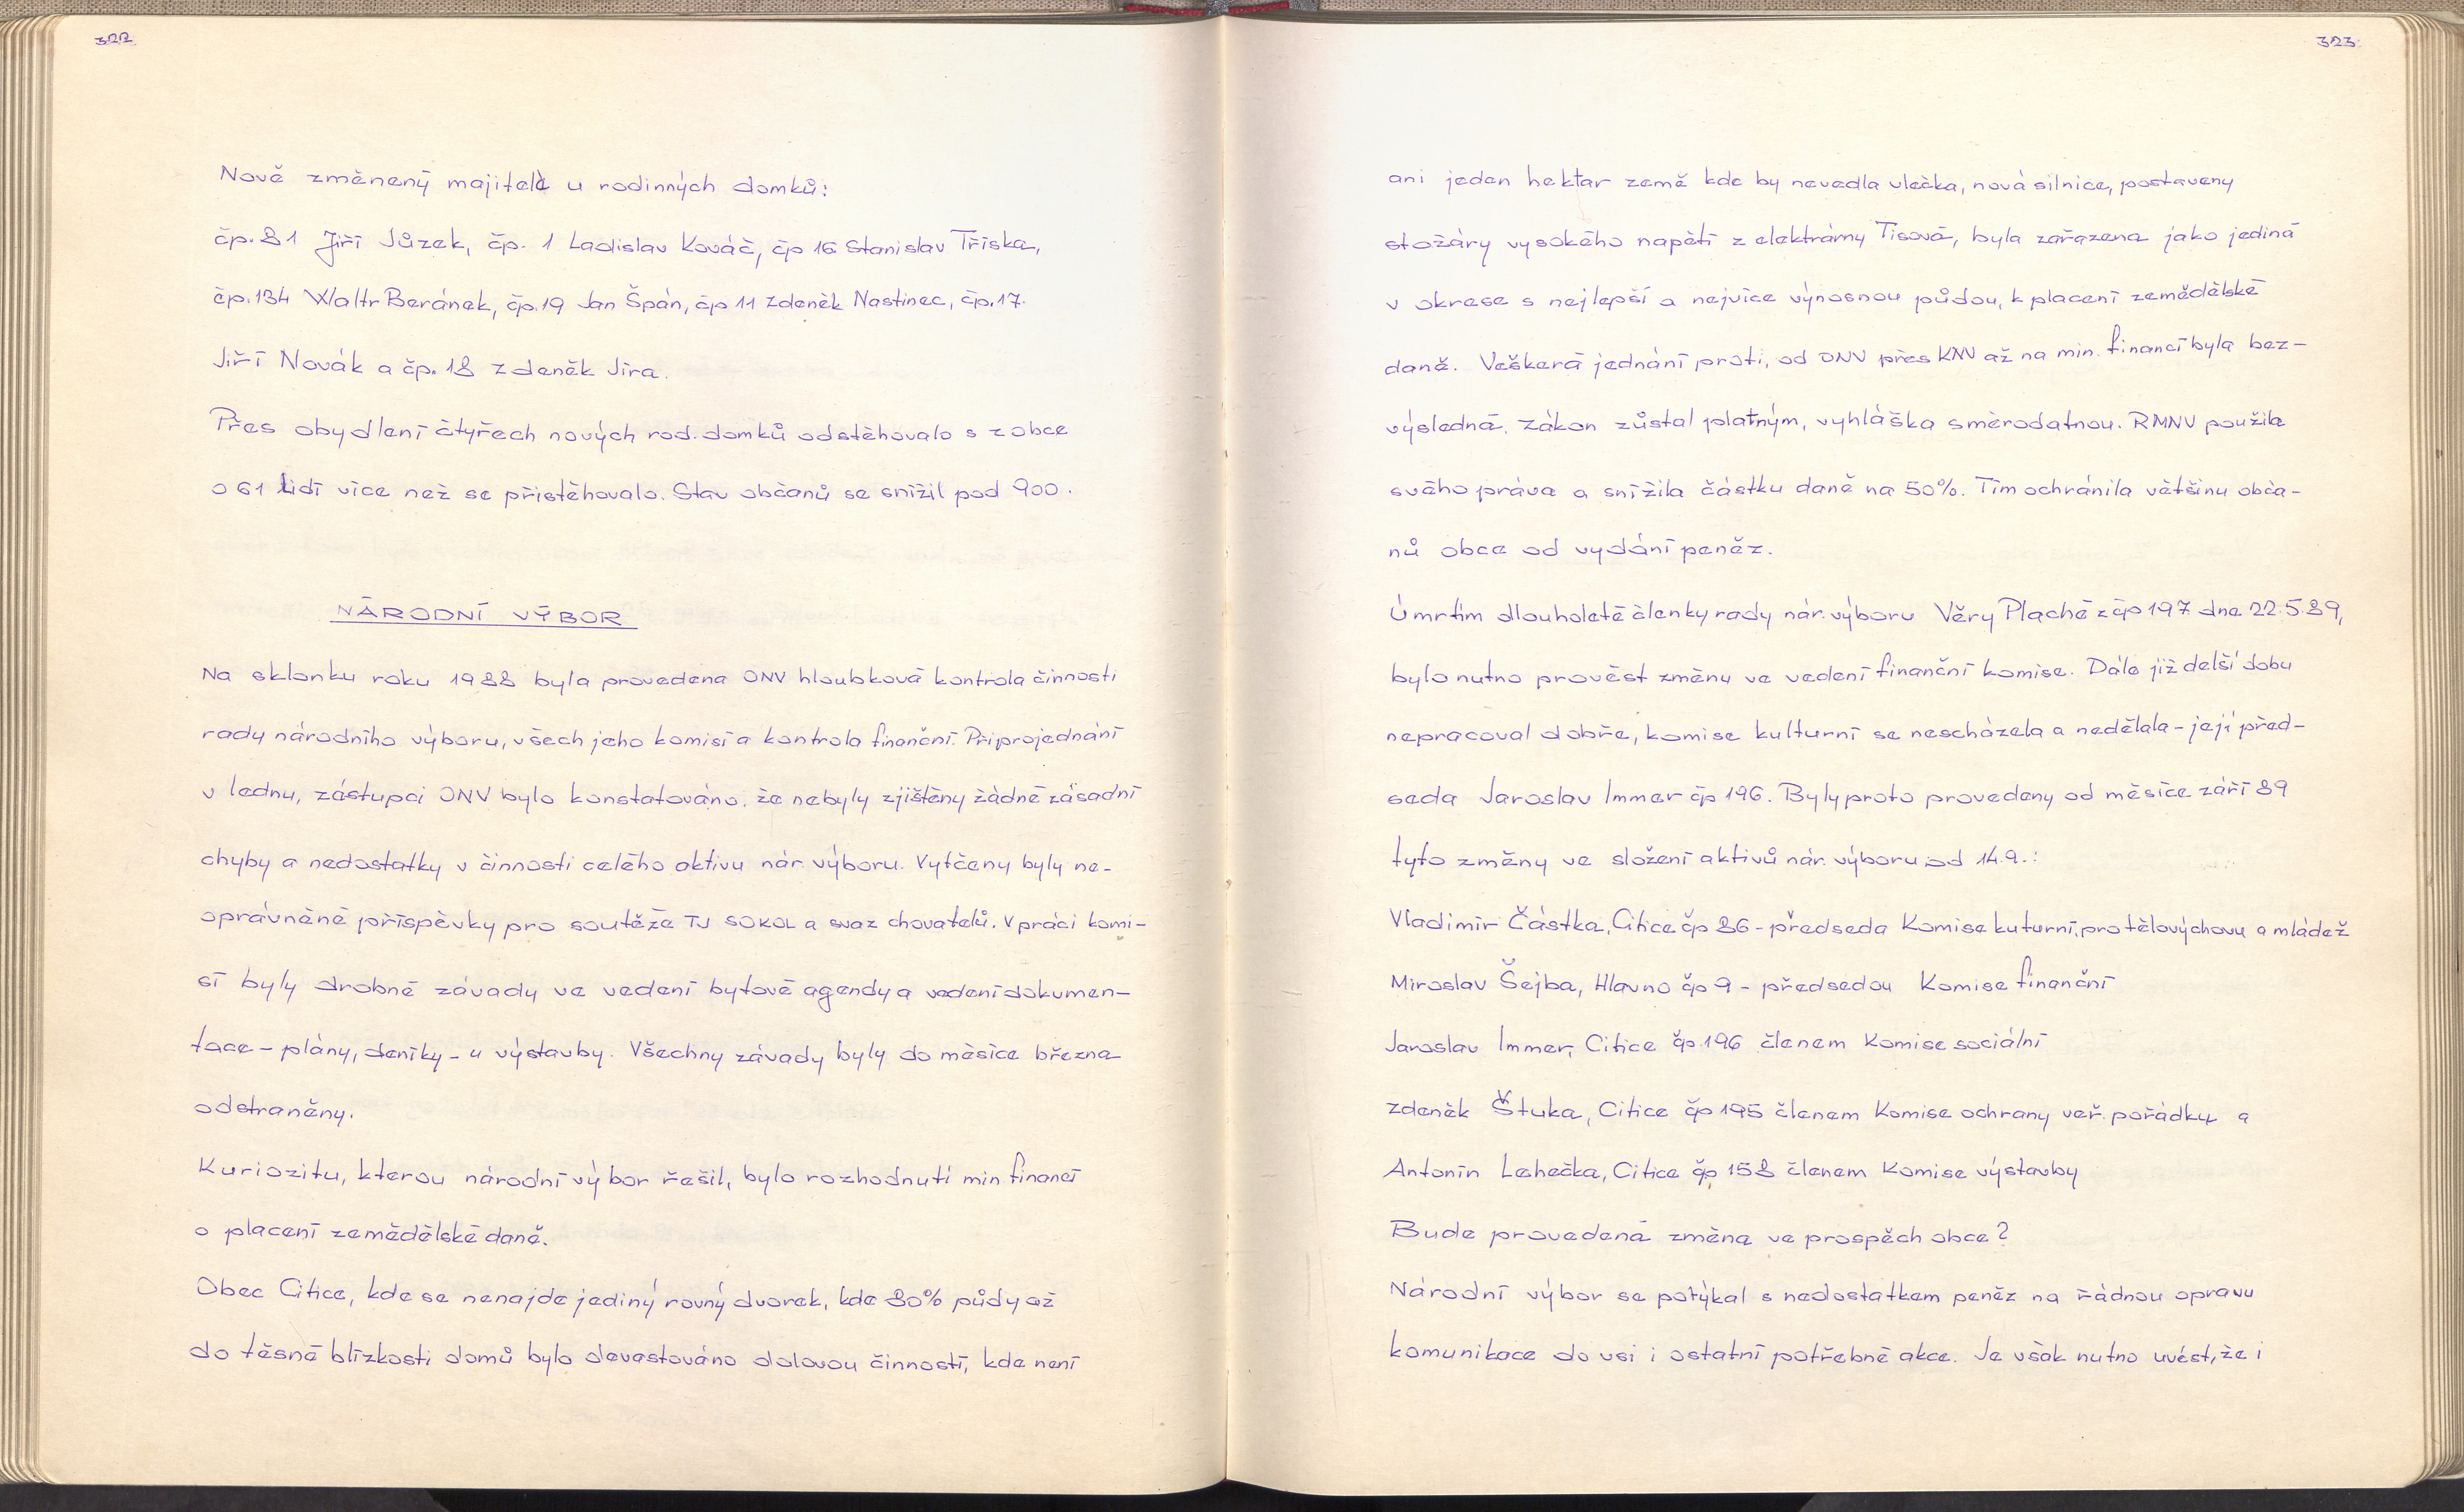 322
Nově změnený majitelè u rodinných domků:
čp. 81 Jiří Jůzek, čp. 1 Ladislav Kováč, čp 16 Stanislav Tříska,
čp. 134 Waltr Beránek, čp. 19 Jan Špán, čp 11 Zdeněk Nastinec, čp. 17.
Jiří Novák a čp. 18 Zdeněk Jíra.
Přes obydlení čtyřech nových rod. domků odstěhovalo s z obce
o 61 lidí více než se přistěhovalo. Stav občanů se snížil pod 900.
NÁRODNÍ VÝBOR
Na sklonku roku 1988 byla provedena ONV hloubková kontrola činnosti
rady národního výboru, všech jeho komisí a kontrola finanční. Při projednání
v lednu, zástupci ONV bylo konstatováno, že nebyly zjištěny žádné zásadní
chyby a nedostatky v činnosti celého aktivu nár. výboru. Vytčeny byly ne-
oprávněné příspěvky pro soutěže TJ SOKOL a svaz chovatelů. V práci komi-
sí byly drobné závady ve vedení bytové agendy a vedení dokumen-
tace - plány, deníky - u výstavby. Všechny závady byly do měsíce března
odstraněny.
Kuriozitu, kterou národní výbor řešil, bylo rozhodnutí min. financí
o placení zemědělské daně.
Obec Citice, kde se nenajde jediný rovný dvorek, kde 80% půdy až
do těsné blízkosti domů bylo devastováno dolovou činností, kde není
323
ani jeden hektar země kde by nevedla vlečka, nová silnice, postaveny
stožáry vysokého napětí z elektrárny Tisová, byla zařazena jako jediná
v okrese s nejlepší a nejvíce výnosnou půdou, k placení zemědělské
daně. Veškerá jednání proti, od ONV přes KNV až na min. financí byla bez-
výsledná. Zákon zůstal platným, vyhláška směrodatnou. RMNV použila
svého práva a snížila částku daně na 50%. Tím ochránila většinu obča-
nů obce od vydání peněz.
Úmrtím dlouholeté členky rady nár. výboru Věry Plaché z čp 197 dne 22.5.89,
bylo nutno provést změnu ve vedení finanční komise. Dále již delší dobu
nepracoval dobře, komise kulturní se nescházela a nedělala - její před-
seda Jaroslav Immer čp 196. Byly proto provedeny od měsíce září 89
tyto změny ve složení aktivů nár. výboru od 14.9.:
Vladimír Částka, Citice čp 86 - předseda Komise kuturní, pro tělovýchovu a mládež
Miroslav Šejba, Hlavno čp 9 - předsedou Komise finanční
Jaroslav Immer, Citice čp. 196 členem Komise sociální
Zdeněk Štuka, Citice čp 195 členem Komise ochrany veř. pořádku a
Antonín Lehečka, Citice čp 158 členem Komise výstavby
Bude provedená změna ve prospěch obce?
Národní výbor se potýkal s nedostatkem peněz na řádnou opravu
komunikace do vsi i ostatní potřebné akce. Je však nutno uvést, že i